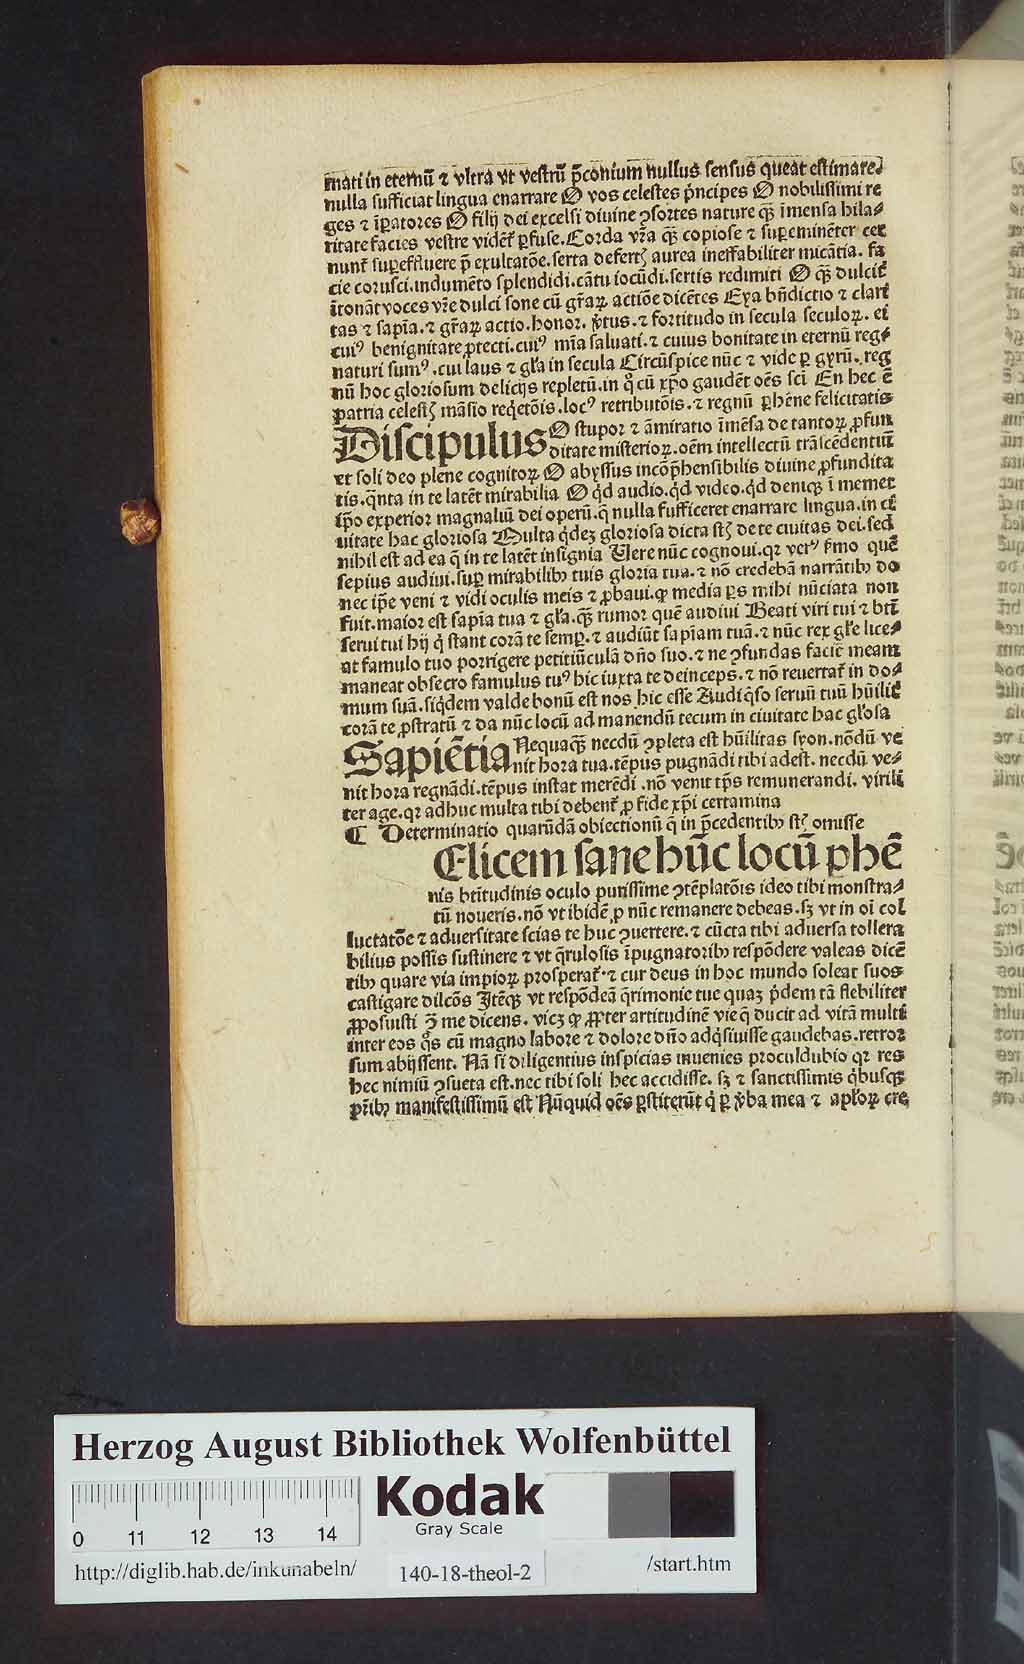 mati in eternū ⁊ vltra vt vestrū p̄conium nullus sensus queat estimare
nulla sufficiat lingua enarrare O vos celestes p̄ncipes O nobilissimi re
ges ⁊ īꝑatores O filij dei excelsi diuine ꝯsortes nature qƺ̄ īmensa hila⸗
ritate facies vestre vidēt̉ ꝑfuse. Corda vr̄a qƺ̄ copiose ⁊ suꝑeminēter cer
nunt̉ suꝑeffluere p̄ exultatōe. serta defertꝭ aurea ineffabiliter micātia. fa
cie corusci. indumēto splendidi. cātu iocūdi. sertis redimiti O qƺ̄ dulcit̉
ītonāt voces vr̄e dulci sone cū gr̄aꝝ actiōe dicētes Eya bn̄dictio ⁊ clari
tas ⁊ sapīa. ⁊ gr̄aꝝ actio. honor. v̓tus. ⁊ fortitudo in secula seculoꝝ. ei
cuiꝰ benignitate ꝓtecti. cuiꝰ mīa saluati. ⁊ cuius bonitate in eternū reg⸗
naturi sumꝰ. cui laus ⁊ gl̄a in secula Circūspice nūc ⁊ vide ꝑ gyrū. reg
nū hoc gloriosum delicijs repletū. in qͦ cū xp̄o gaudēt oēs sc̄i En hec ē
patria celestꝭ māsio reqͥetōis. locꝰ retributōis. ⁊ regnū ꝑhēne felicitatis
Discipulus O stupor ⁊ āmiratio īmēsa de tantoꝝ ꝓfun
ditate misterioꝝ. oēm intellectū trāscēdentiū
et soli deo plene cognitoꝝ O abyssus incōp̄hensibilis diuine ꝓfundita
tis. qn̄ta in te latēt mirabilia O qͥd audio. qͥd video. qͥd deniqƺ ī memet
ip̄o experior magnaliū dei operū. q̄ nulla sufficeret enarrare lingua. in ci
uitate hac gloriosa Multa qͥdeƺ gloriosa dicta stꝭ de te ciuitas dei. sed
nihil est ad ea q̄ in te latēt insignia Vere nūc cognoui. qꝛ verꝰ s̓mo quē
sepius audiui. suꝑ mirabilibꝰ tuis gloria tua. ⁊ nō credebā narrātibꝰ do
nec ip̄e veni ⁊ vidi oculis meis ⁊ ꝓbaui. ꝙ media ꝑs mihi nūciata non
fuit. maior est sapīa tua ⁊ gl̄a. qƺ̄ rumor quē audiui Beati viri tui ⁊ bt̄i
serui tui hij qͥ stant corā te semꝑ. ⁊ audiūt sapīam tuā. ⁊ nūc rex gl̄e lice⸗
at famulo tuo porrigere petitiūculā dn̄o suo. ⁊ ne ꝯfundas faciē meam
maneat obsecro famulus tuꝰ hic iuxta te deinceps. ⁊ nō reuertat̉ in do⸗
mum suā. siqͥdem valde bonū est nos hic esse Audi q̄so seruū tuū hūilit̉
corā te ꝓstratū ⁊ da nūc locū ad manendū tecum in ciuitate hac gl̄osa
Sapiētia Nequaqƺ̄ necdū ꝯpleta est hūilitas syon. nōdū ve
nit hora tua. tēpus pugnādi tibi adest. necdū ve⸗
nit hora regnādi. tēpus instat merēdi. nō venit tp̄s remunerandi. virili
ter age. qꝛ adhuc multa tibi debent̉ ꝓ fide xp̄i certamina
¶ Determinatio quarūdā obiectionū q̄ in p̄cedentibꝰ stꝭ omisse
Elicem sane hūc locū phē
nis bt̄itudinis oculo purissime ꝯtēplatōis ideo tibi monstra⸗
tū noueris. nō vt ibidē ꝓ nūc remanere debeas. sƺ vt in oī col
luctatōe ⁊ aduersitate scias te huc ꝯuertere. ⁊ cūcta tibi aduersa tollera
bilius possis sustinere ⁊ vt q̄rulosis īpugnatoribꝰ respōdere valeas dicē
tibꝰ quare via impioꝝ prosperat̉ ⁊ cur deus in hoc mundo soleat suos
castigare dilcōs Itēqƺ vt respōdeā q̄rimonie tue quaƺ pͥdem tā flebiliter
ꝓposuisti ꝯ̄ me dicens. vicƺ ꝙ ꝓpter artitudinē vie q̄ ducit ad vitā multi
inter eos qͦs cū magno labore ⁊ dolore dn̄o adqͥsiuisse gaudebas. retror
sum abijssent. Nā si diligentius inspicias inuenies proculdubio qꝛ res
hec nimiū ꝯsueta est. nec tibi soli hec accidisse. sƺ ⁊ sanctissimis qͥbusqƺ
pr̄ibꝰ manifestissimū est Nūquid oēs ꝑstiterūt qͥ ꝑ v̓ba mea ⁊ apl̓oꝝ cre
Herzog August Bibliothek Wolfenbüttel
0 11 12 13 14
Kodak
Gray Scale
http://diglib.hab.de/inkunabeln/
140-18-theol-2
/start.htm